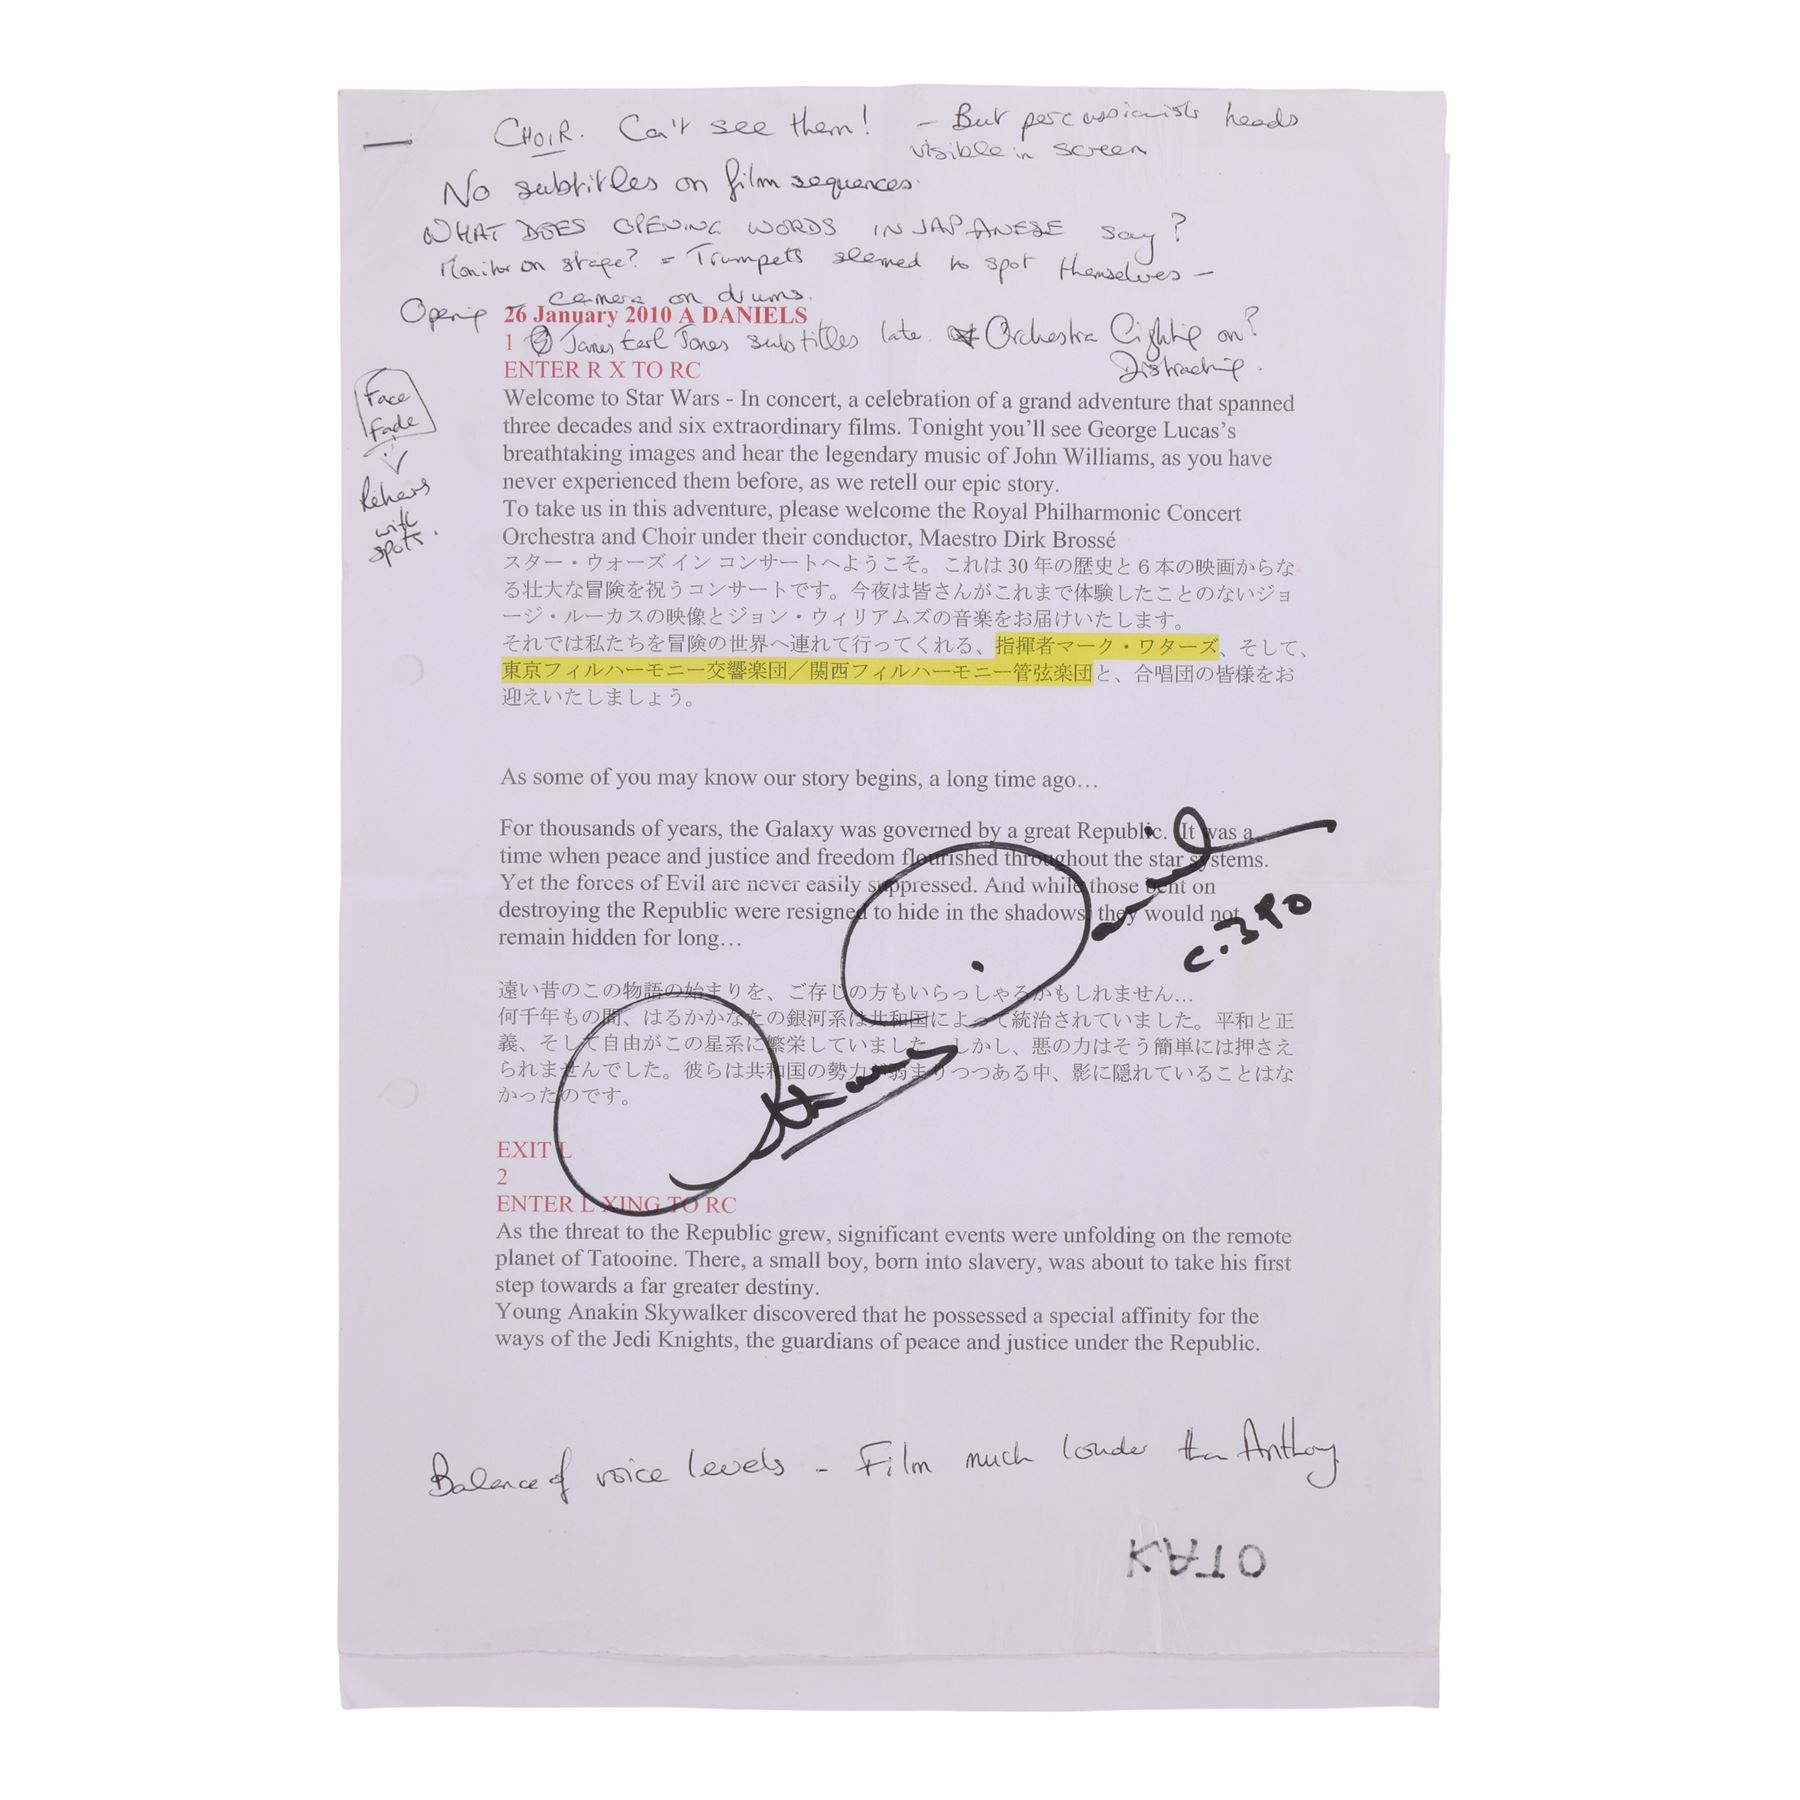 CHOIR. Can't see them! - But percussionists heads
visible in screen
No subtitles on film sequences.
WHAT DOES OPENING WORDS IN JAPANESE say?
Monitor on stage? = Trumpets seemed to spot themselves -
Opening - camera on drums.
26 January 2010 A DANIELS
1 James Earl Jones subtitles late. Orchestra Lighting on?
Distracting.
ENTER R X TO RC
Face
Fade
Rehears
with
spots.
Welcome to Star Wars - In concert, a celebration of a grand adventure that spanned
three decades and six extraordinary films. Tonight you'll see George Lucas's
breathtaking images and hear the legendary music of John Williams, as you have
never experienced them before, as we retell our epic story.
To take us in this adventure, please welcome the Royal Philharmonic Concert
Orchestra and Choir under their conductor, Maestro Dirk Brossé
スター・ウォーズ イン コンサートへようこそ。これは 30 年の歴史と 6 本の映画からな
る壮大な冒険を祝うコンサートです。今夜は皆さんがこれまで体験したことのないジョ
ージ・ルーカスの映像とジョン・ウィリアムズの音楽をお届けいたします。
それでは私たちを冒険の世界へ連れて行ってくれる、指揮者マーク・ワターズ、そして、
東京フィルハーモニー交響楽団／関西フィルハーモニー管弦楽団と、合唱団の皆様をお
迎えいたしましょう。
As some of you may know our story begins, a long time ago…
For thousands of years, the Galaxy was governed by a great Republic. It was a
time when peace and justice and freedom flourished throughout the star systems.
Yet the forces of Evil are never easily suppressed. And while those bent on
destroying the Republic were resigned to hide in the shadows, they would not
remain hidden for long…
遠い昔のこの物語の始まりを、ご存じの方もいらっしゃるかもしれません…
何千年もの間、はるかかなたの銀河系は共和国によって統治されていました。平和と正
義、そして自由がこの星系に繁栄していました。しかし、悪の力はそう簡単には押さえ
られませんでした。彼らは共和国の勢力が弱まりつつある中、影に隠れていることはな
かったのです。
Anthony Daniels
C.3PO
EXIT L
2
ENTER L XING TO RC
As the threat to the Republic grew, significant events were unfolding on the remote
planet of Tatooine. There, a small boy, born into slavery, was about to take his first
step towards a far greater destiny.
Young Anakin Skywalker discovered that he possessed a special affinity for the
ways of the Jedi Knights, the guardians of peace and justice under the Republic.
Balance of voice levels - Film much louder than Anthony
KATO